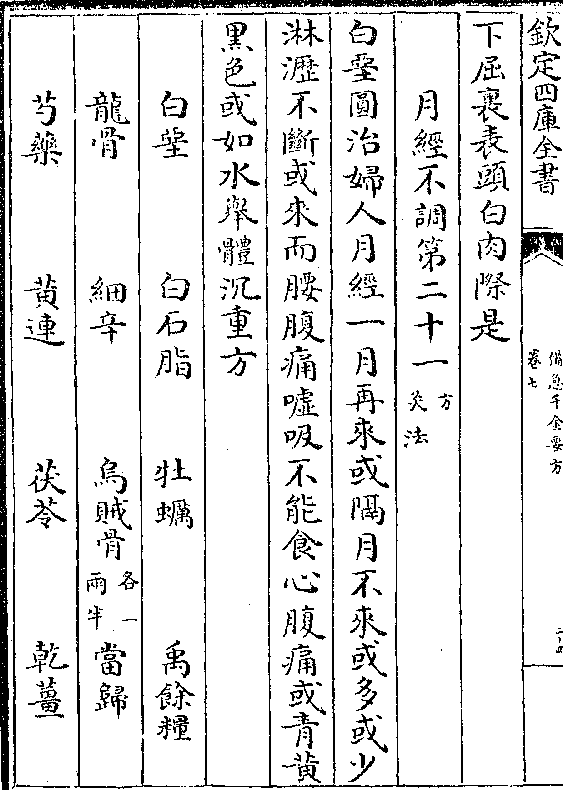 欽定四庫全書
備急千金要方
卷七
下屈裏表頭白肉際是
月經不調第二十一方灸法
白堊圓治婦人月經一月再來或隔月不來或多或少
淋瀝不斷或來而腰腹痛噓吸不能食心腹痛或青黃
黑色或如水舉體沉重方
白堊 白石脂 牡蠣 禹餘糧
龍骨 細辛 烏賊骨各一兩半 當歸
芍藥 黃連 茯苓 乾薑